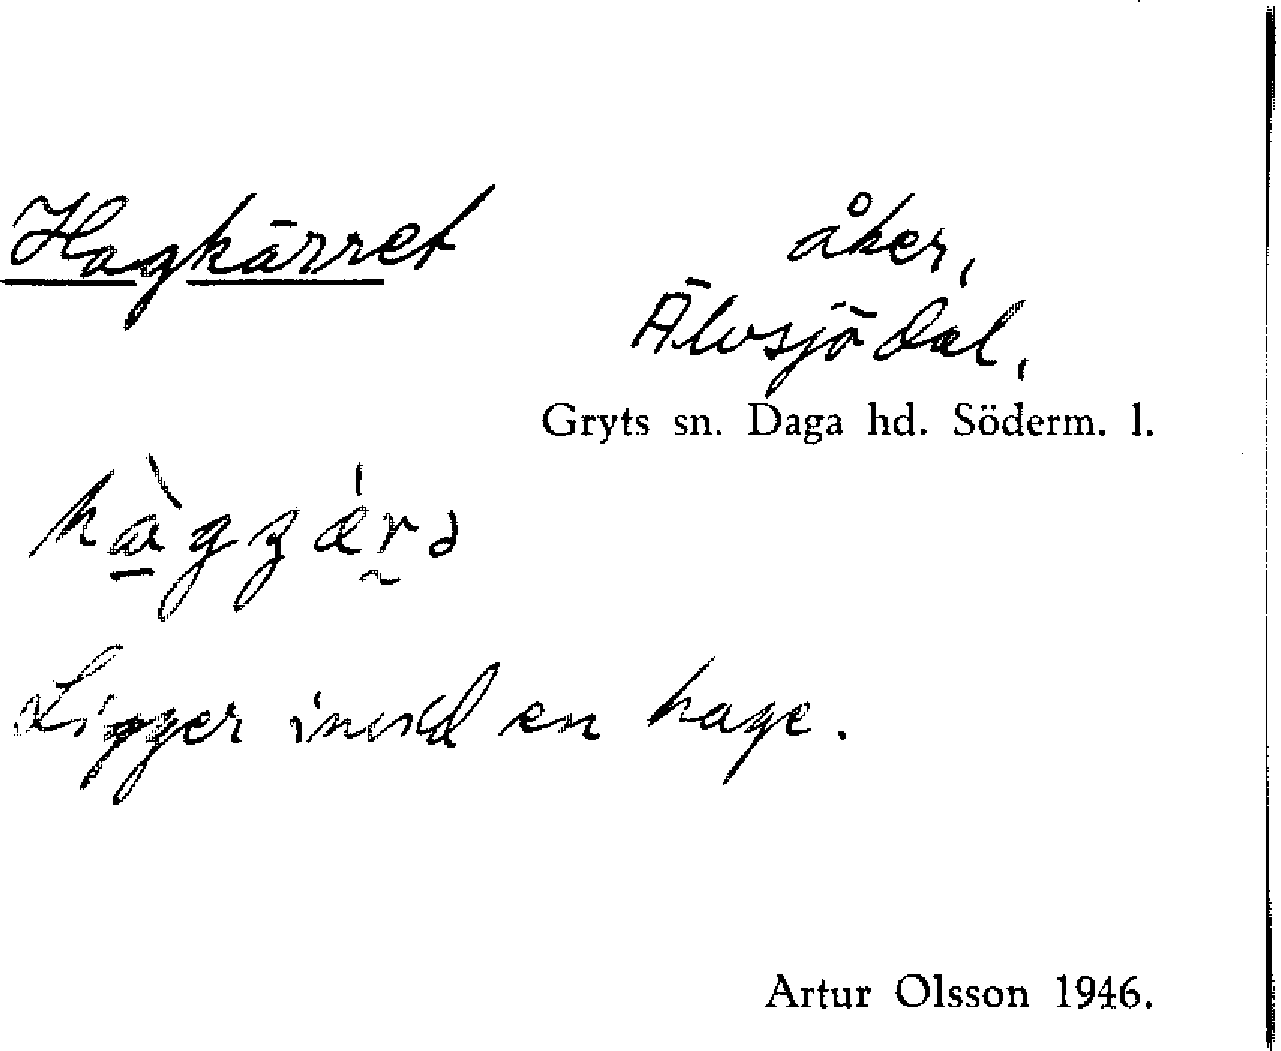 Hagkärret åker,
Älvsjödal,
Gryts sn. Daga hd. Söderm. l.
Ligger invid en hage.
Artur Olsson 1946.